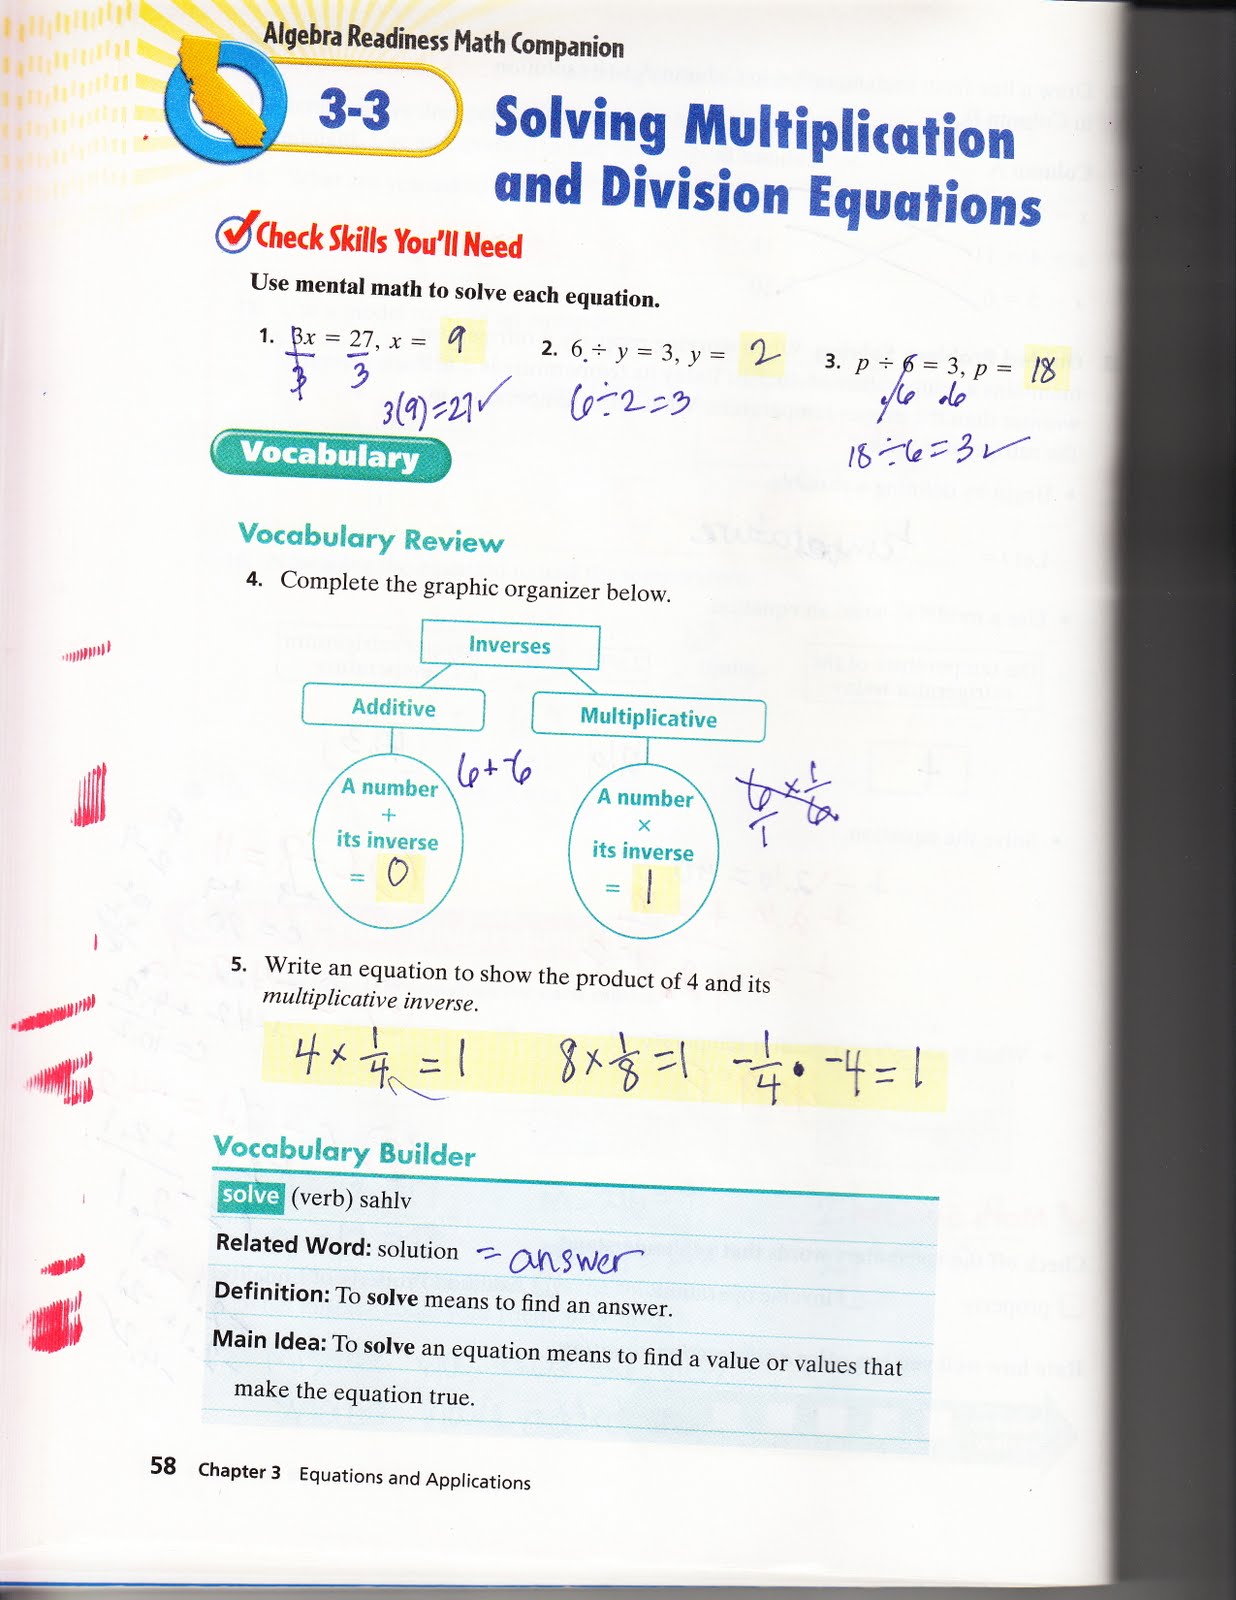 Algebra Readiness Math Companion
3-3
Solving Multiplication
and Division Equations
Check Skills You'll Need
Use mental math to solve each equation.
1. 3x = 27, x = 9
2. 6 ÷ y = 3, y = 2
3. p ÷ 6 = 3, p = 18
3 3
·6 ·6
3(9)=27✓
6÷2=3
18÷6=3✓
Vocabulary
Vocabulary Review
4. Complete the graphic organizer below.
Inverses
Additive
Multiplicative
A number
+
its inverse
= 0
6+-6
A number
×
its inverse
= 1
6/1 × 1/6
5. Write an equation to show the product of 4 and its
multiplicative inverse.
4 × 1/4 = 1 8 × 1/8 = 1 -1/4 • -4 = 1
Vocabulary Builder
solve (verb) sahlv
Related Word: solution = answer
Definition: To solve means to find an answer.
Main Idea: To solve an equation means to find a value or values that
make the equation true.
58 Chapter 3 Equations and Applications